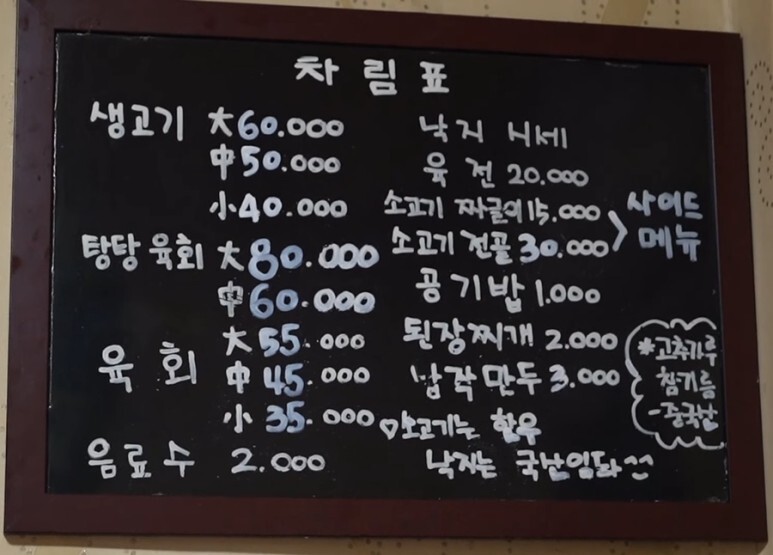 차림표
생고기 大 60.000
中 50.000
小 40.000
탕탕육회 大 80.000
中 60.000
육회 大 55.000
中 45.000
小 35.000
음료수 2.000
낙지 시세
육전 20.000
소고기 짜글이 15.000
소고기 전골 30.000
사이드
메뉴
공기밥 1.000
된장찌개 2.000
납작만두 3.000
♡소고기는 한우
낙지는 국산입니다^^
*고추가루
참기름
-중국산